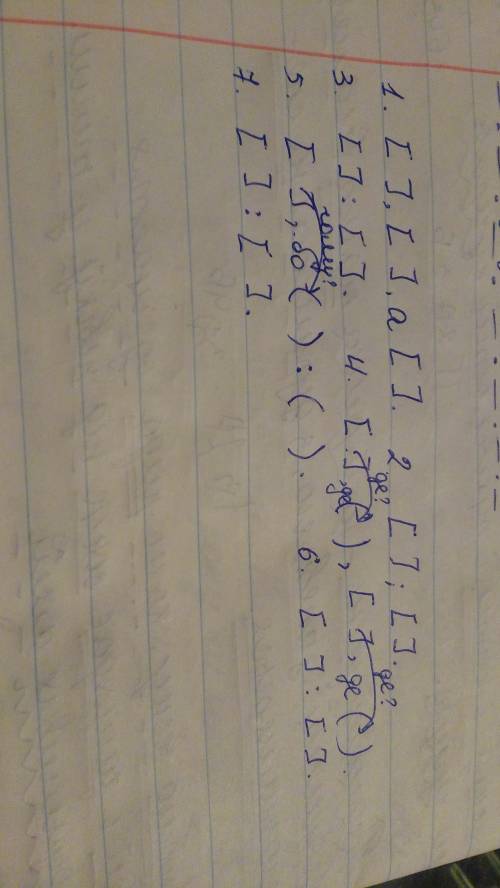 1. [ ], [ ], а [ ]. 2. [ ]; [ ].
3. [ ]: [ ]. 4. [ ], де ( ), [ ], де ( ).
де? де?
чому?
5. [ ], бо ( ): ( ). 6. [ ]: [ ].
7. [ ]: [ ].